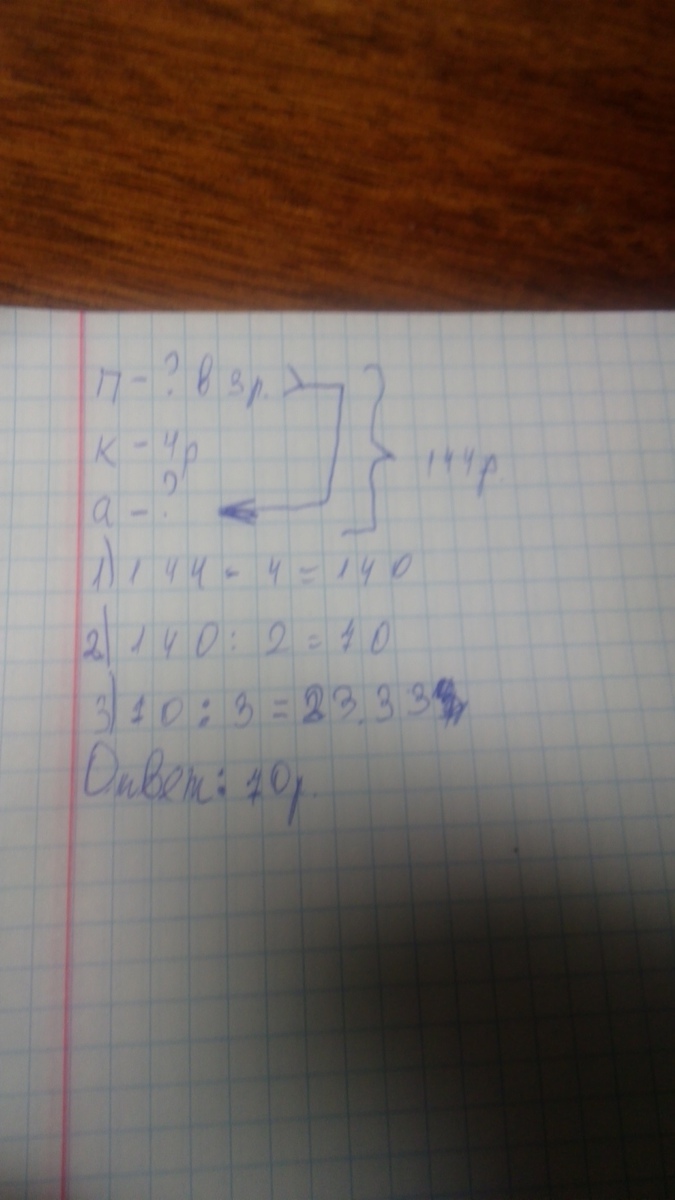 п - ? в 3р. >
к - 4р
а - ?
144р.
1) 144 - 4 = 140
2) 140 : 2 = 70
3) 70 : 3 = 23.33
Ответ: 70р.